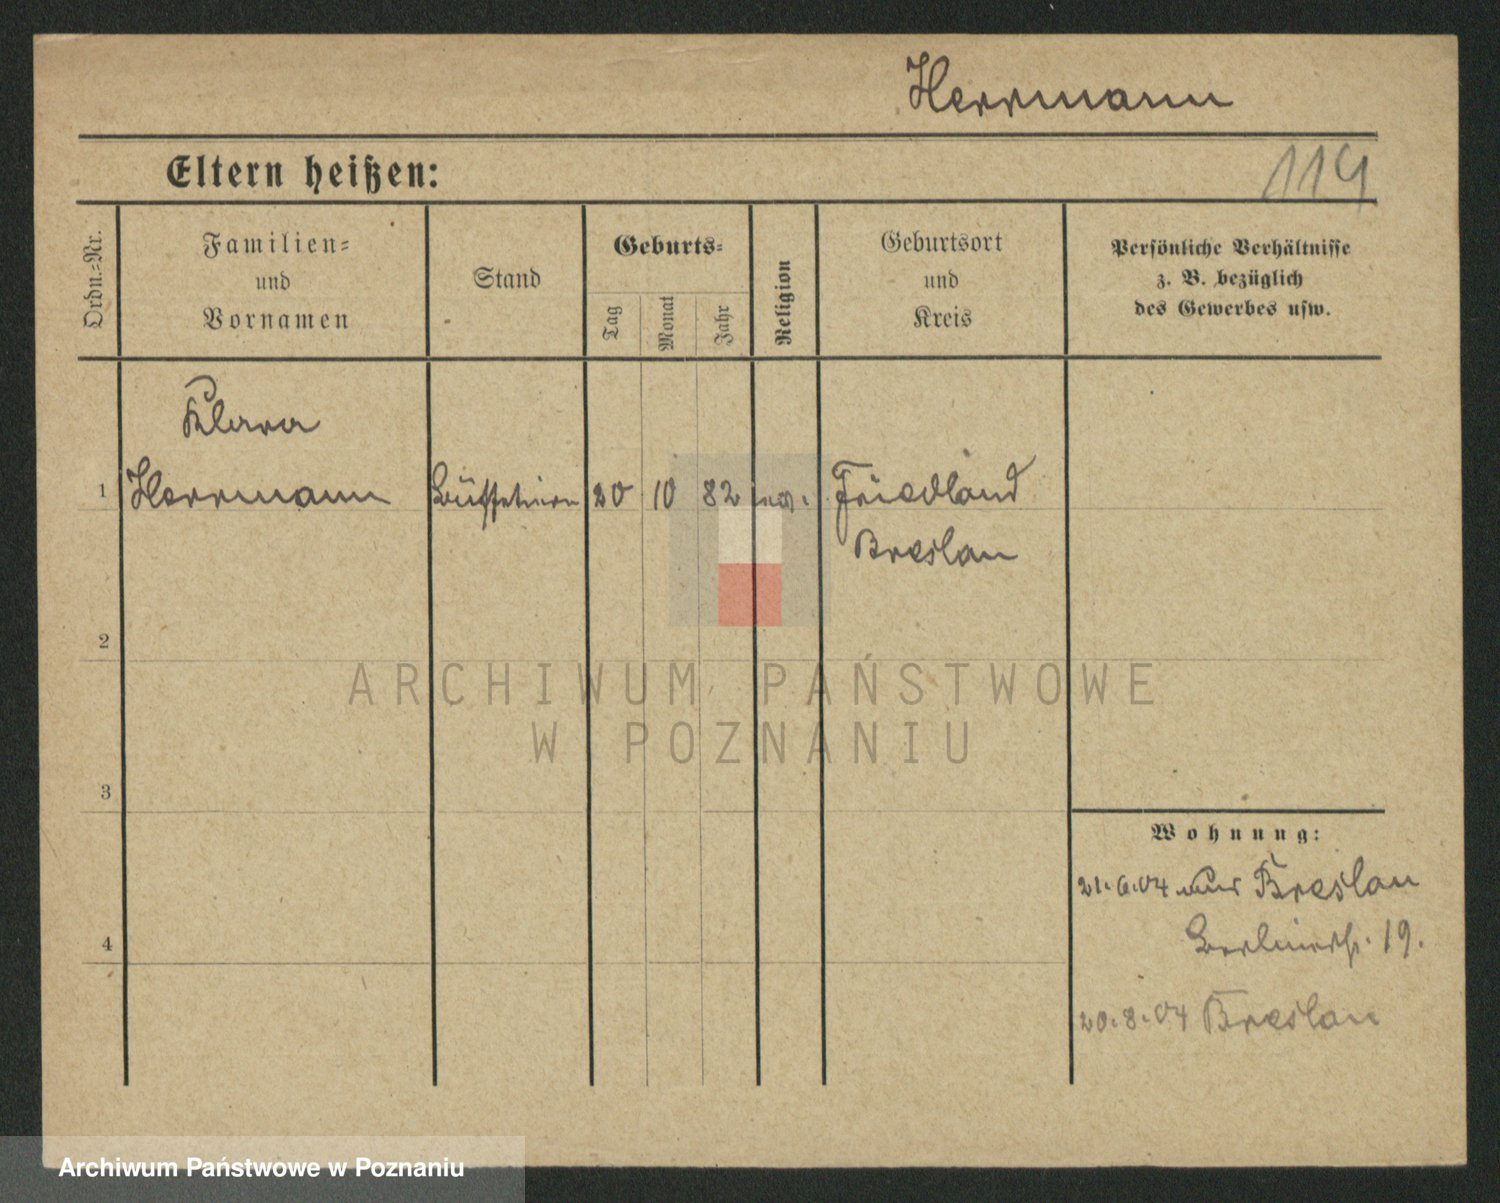 Herrmann
Eltern heißen:
114
Ordn.-Nr.
Familien-
und
Vornamen
Stand
Geburts-
Tag
Monat
Jahr
Religion
Geburtsort
und
Kreis
Persönliche Verhältnisse
z. B. bezüglich
des Gewerbes usw.
Klara
1 Herrmann 20 10 82 Friedland
Breslau
2
3
4
Wohnung:
21.6.04 Breslau
Berlinerstr. 19.
20.8.04 Breslau
ARCHIWUM PAŃSTWOWE
W POZNANIU
Archiwum Państwowe w Poznaniu